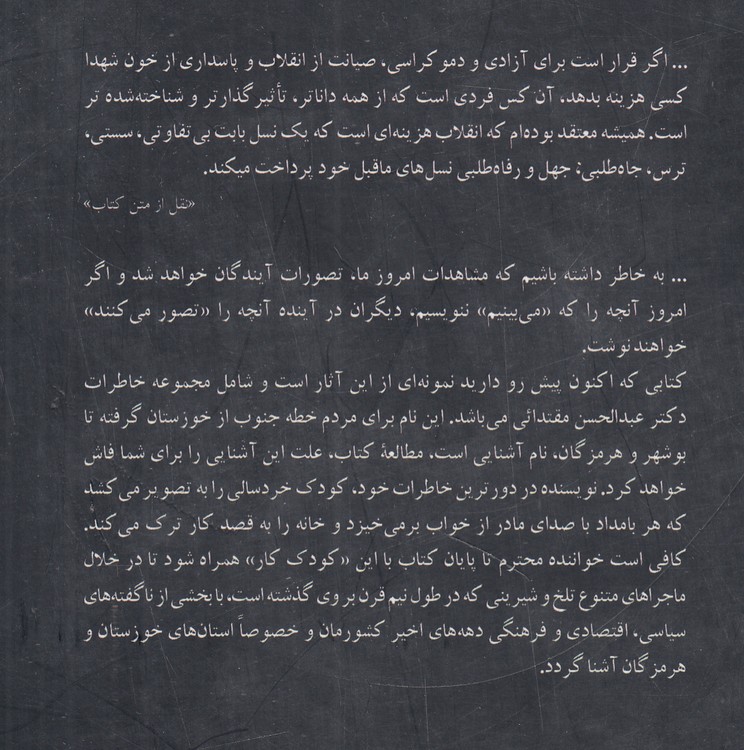 ... اگر قرار است برای آزادی و دموکراسی، صیانت از انقلاب و پاسداری از خون شهدا
کسی هزینه بدهد، آن کس فردی است که از همه داناتر، تأثیرگذارتر و شناخته‌شده تر
است. همیشه معتقد بوده‌ام که انقلاب هزینه‌ای است که یک نسل بابت بی‌تفاوتی، سستی،
ترس، جاه‌طلبی، جهل و رفاه‌طلبی نسل‌های ماقبل خود پرداخت میکند.
«نقل از متن کتاب»
... به خاطر داشته باشیم که مشاهدات امروز ما، تصورات آیندگان خواهد شد و اگر
امروز آنچه را که «می‌بینیم» ننویسیم، دیگران در آینده آنچه را «تصور می‌کنند»
خواهند نوشت.
کتابی که اکنون پیش رو دارید نمونه‌ای از این آثار است و شامل مجموعه خاطرات
دکتر عبدالحسن مقتدائی می‌باشد. این نام برای مردم خطه جنوب از خوزستان گرفته تا
بوشهر و هرمزگان، نام آشنایی است، مطالعهٔ کتاب، علت این آشنایی را برای شما فاش
خواهد کرد. نویسنده در دورترین خاطرات خود، کودک خردسالی را به تصویر می‌کشد
که هر بامداد با صدای مادر از خواب برمی‌خیزد و خانه را به قصد کار ترک می‌کند.
کافی است خواننده محترم تا پایان کتاب با این «کودک کار» همراه شود تا در خلال
ماجراهای متنوع تلخ و شیرینی که در طول نیم قرن بر وی گذشته است، با بخشی از ناگفته‌های
سیاسی، اقتصادی و فرهنگی دهه‌های اخیر کشورمان و خصوصاً استان‌های خوزستان و
هرمزگان آشنا گردد.